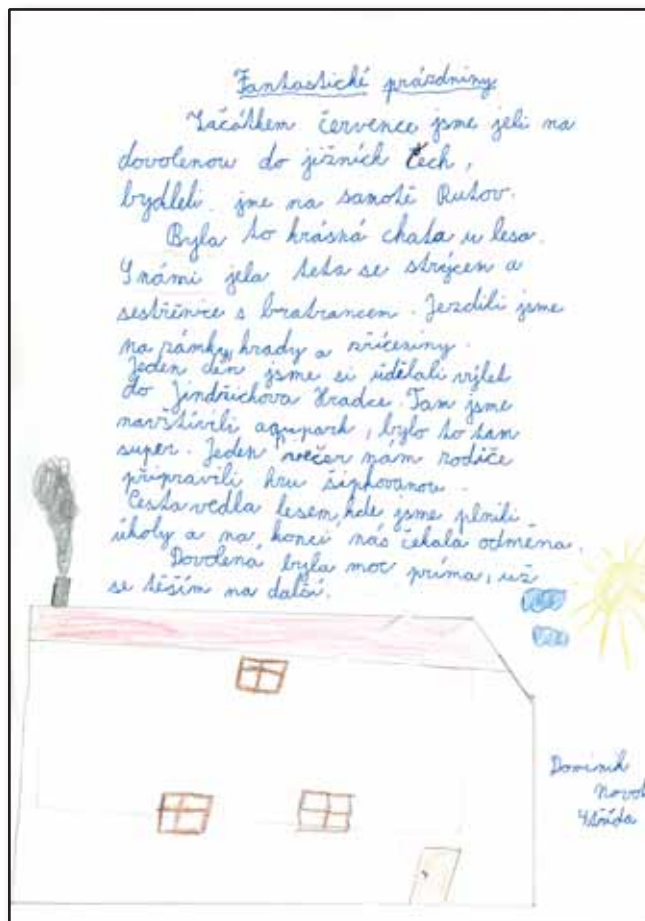 Fantastické prázdniny
Začátkem července jsme jeli na
dovolenou do jižních Čech,
bydleli jme na samotě Rutov.
Byla to krásná chata u lesa.
S námi jela teta se strýcem a
sestřenice s bratrancem. Jezdili jsme
na zámky, hrady a zříceniny.
Jeden den jsme si udělali výlet
do Jindřichova Hradce. Tam jsme
navštívili aqupark, bylo to tam
super. Jeden večer nam rodiče
připravili hru šipkovanou.
Cesta vedla lesem, kde jsme plnili
úkoly a na konci nás čekala odměna.
Dovolená byla moc príma, už
se těším na další.
Dominik
4 třída